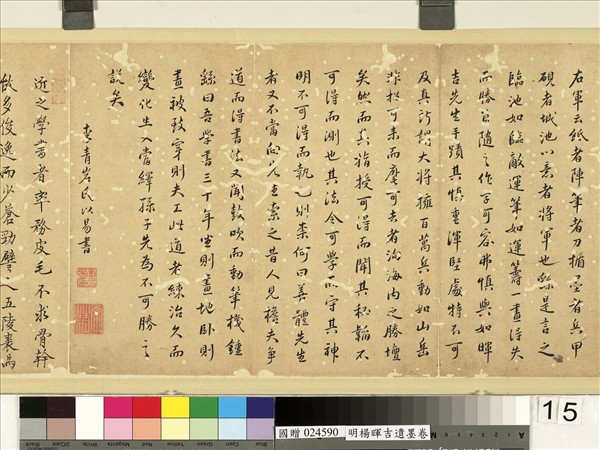 右軍云紙者陣筆者刀楯墨者兵甲
硯者城池心意者將軍也繇是言之
臨池如臨敵運筆如運籌一畫得失
而勝負隨之作字可容弗慎與如暉
吉先生手蹟其慎重渾堅處特不可
及真所謂大將擁百萬兵動如山岳
非招可来而麾可去者海内之勝壇
矣然而其指授可得而聞其秘韜不
可得而測也其法令可學而守其神
明不可得而執已則柰何曰善體先生
者又不當向先生索之昔人見擔夫爭
道而得書法又聞鼓吹而動筆機鍾
繇曰吾學書三十年坐則畫地卧則
畫被致穿則夫工此道老練治久而
變化生又當繹孫子先為不可勝之
說矣
青岑氏以易書
近之學書者率務皮毛不求骨幹
故多俊逸而少蒼勁譬之五陵裘馬
15
國贈 024590 明楊暉吉遺墨卷
Black
3/Color
White
Magenta
Red
Yellow
Green
Cyan
Blue
A